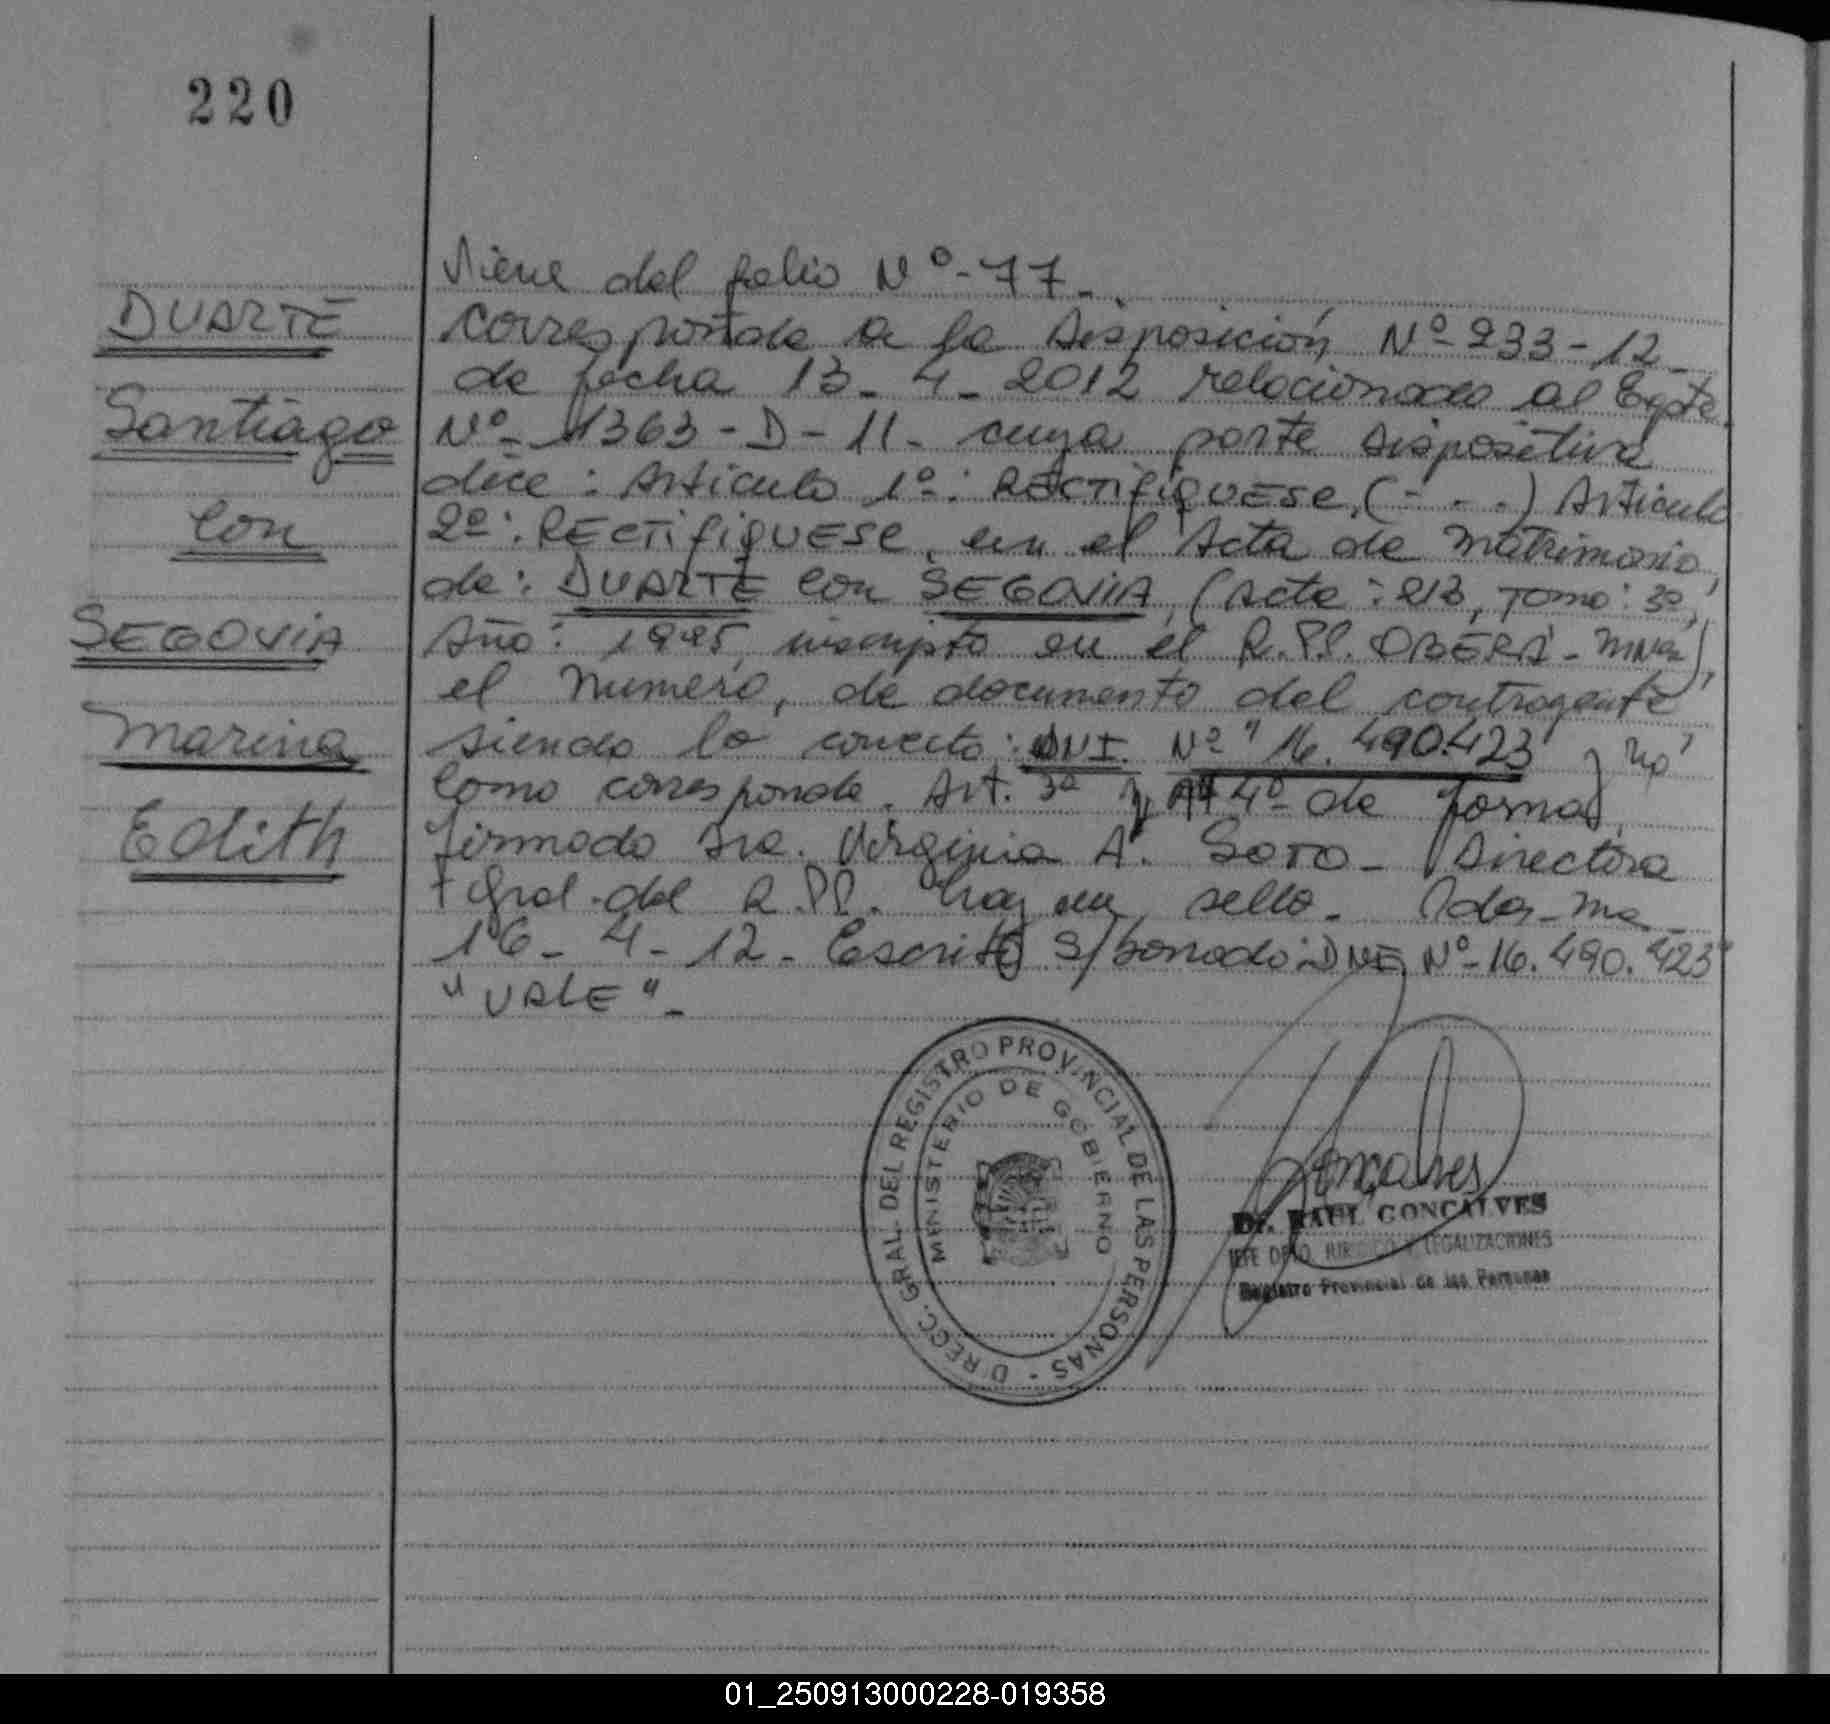 220
DUARTE
Santiago
con
SEGOVIA
Marina
Edith
Viene del folio Nº-77-.
Corresponde a la Disposición Nº-233-12-
de fecha 13-4-2012 relacionada al Expte.
Nº- 1363-D-11- cuya parte dispositiva
dice: Articulo 1º: RECTIFIQUESE, (- - -) Articulo
2º: RECTIFIQUESE, en el Acta de Matrimonio,
de: DUARTE con SEGOVIA, (Acta: 213, Tomo: 3º,
Año: 1995, inscripto en el R.PP. OBERÁ-Mnes),
el numero, de documento del contrayente
siendo lo correcto: DNI. Nº "16.490.423 y no
como corresponde. Art. 3º y Art 4º de forma,
firmado Sra. Virginia A. SOTO- Directora
Gral. del R.PP. hay un sello. Pdas-Mnes
16-4-12- Escrito s/borrado: DNI Nº-16.490.423"
"VALE"-
DIRECC. GRAL. DEL REGISTRO PROVINCIAL DE LAS PERSONAS -
MINISTERIO DE GOBIERNO
Goncalves
Dr. RAUL GONCALVES
JEFE DPTO. JURIDICO Y LEGALIZACIONES
Registro Provincial de las Personas
01_250913000228-019358